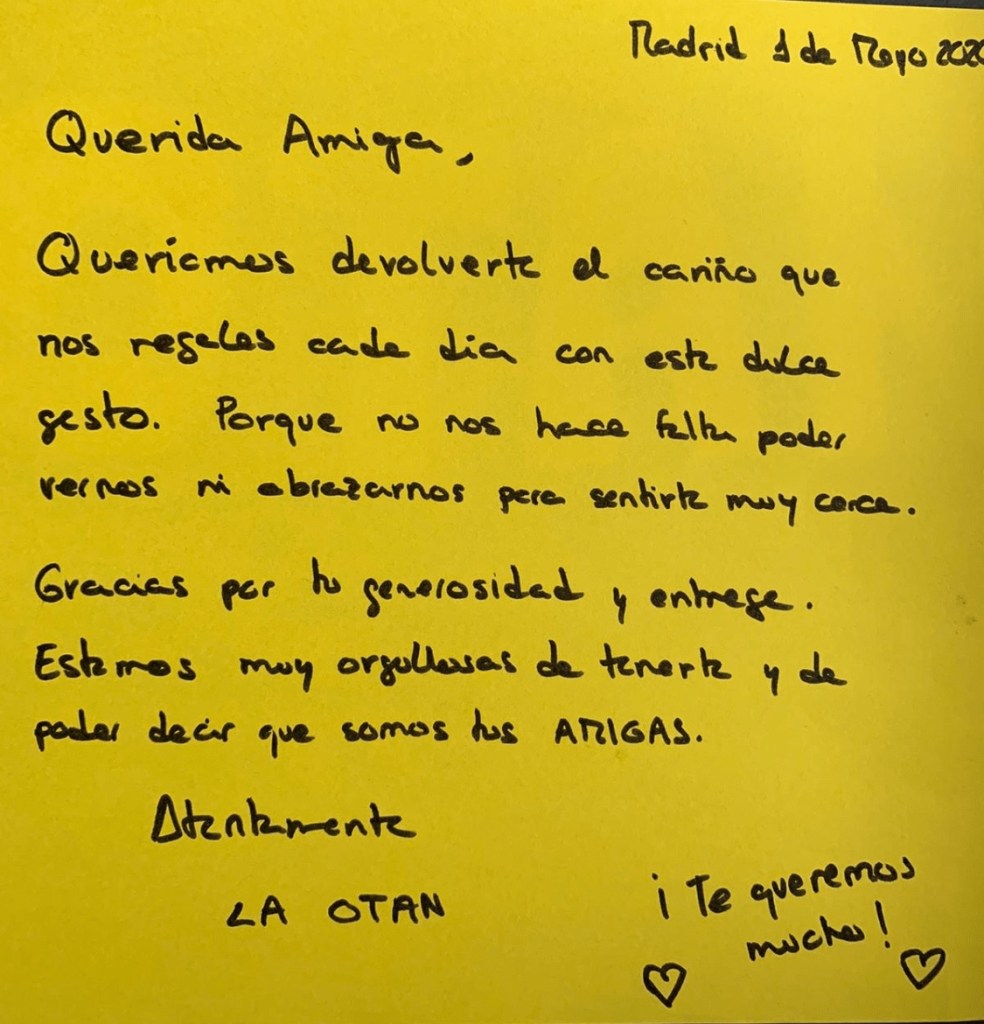 Madrid 1 de Mayo 2020
Querida Amiga,
Queríamos devolverte el cariño que
nos regalas cada día con este dulce
gesto. Porque no nos hace falta poder
vernos ni abrazarnos para sentirte muy cerca.
Gracias por tu generosidad y entrega.
Estamos muy orgullosas de tenerte y de
poder decir que somos tus AMIGAS.
Atentamente
LA OTAN
¡Te queremos
mucho!